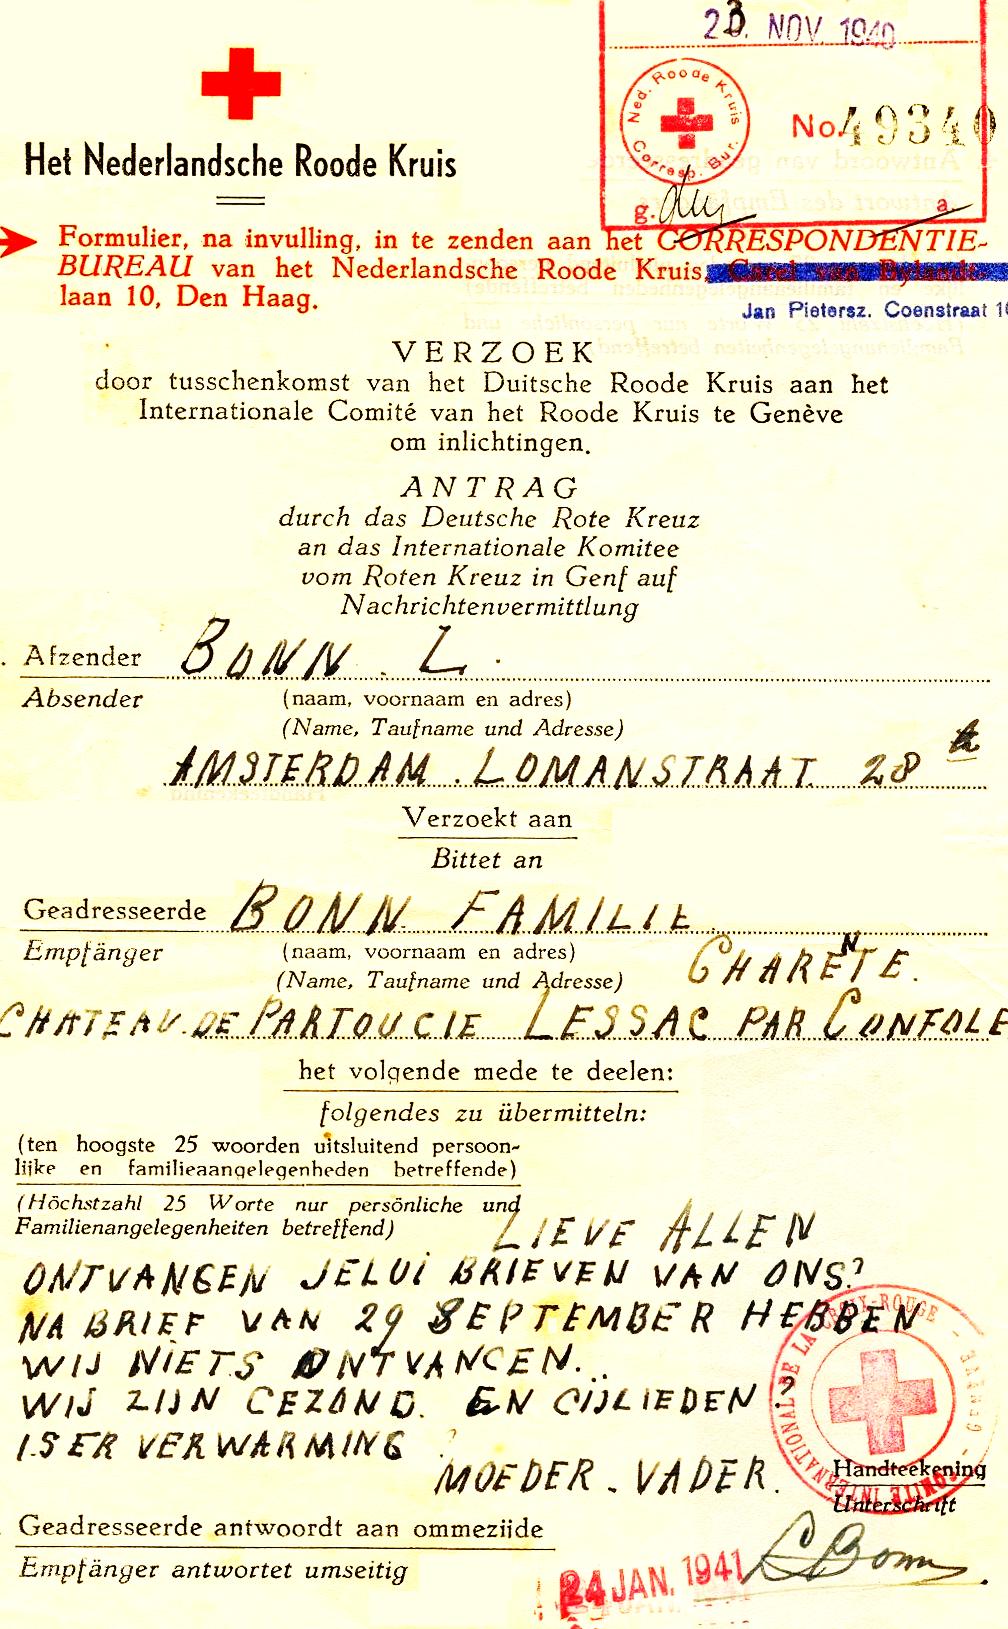 23 NOV. 1940
Ned. Roode Kruis
Corresp. Bur.
No. 49340
g. a.
Het Nederlandsche Roode Kruis
Formulier, na invulling, in te zenden aan het CORRESPONDENTIE-
BUREAU van het Nederlandsche Roode Kruis, Carel van Bylandt-
laan 10, Den Haag.
Jan Pietersz. Coenstraat 10
VERZOEK
door tusschenkomst van het Duitsche Roode Kruis aan het
Internationale Comité van het Roode Kruis te Genève
om inlichtingen.
ANTRAG
durch das Deutsche Rote Kreuz
an das Internationale Komitee
vom Roten Kreuz in Genf auf
Nachrichtenvermittlung
Afzender BONN. L.
Absender (naam, voornaam en adres)
(Name, Taufname und Adresse)
AMSTERDAM. LOMANSTRAAT. 28
Verzoekt aan
Bittet an
Geadresseerde BONN FAMILIE
Empfänger (naam, voornaam en adres)
(Name, Taufname und Adresse) CHARENTE.
CHATEAU.DE PARTOUCIE LESSAC PAR CONFOLE
het volgende mede te deelen:
folgendes zu übermitteln:
(ten hoogste 25 woorden uitsluitend persoon-
lijke en familieaangelegenheden betreffende)
(Höchstzahl 25 Worte nur persönliche und
Familienangelegenheiten betreffend)
LIEVE ALLEN
ONTVANGEN JELUI BRIEVEN VAN ONS?
NA BRIEF VAN 29 SEPTEMBER HEBBEN
WIJ NIETS ONTVANGEN..
WIJ ZIJN GEZOND. EN GIJLIEDEN?
IS ER VERWARMING ?
MOEDER - VADER.
COMITÉ INTERNATIONAL DE LA CROIX-ROUGE - GENÈVE -
Handteekening
Unterschrift
Geadresseerde antwoordt aan ommezijde
Empfänger antwortet umseitig
L Bonn
24 JAN. 1941